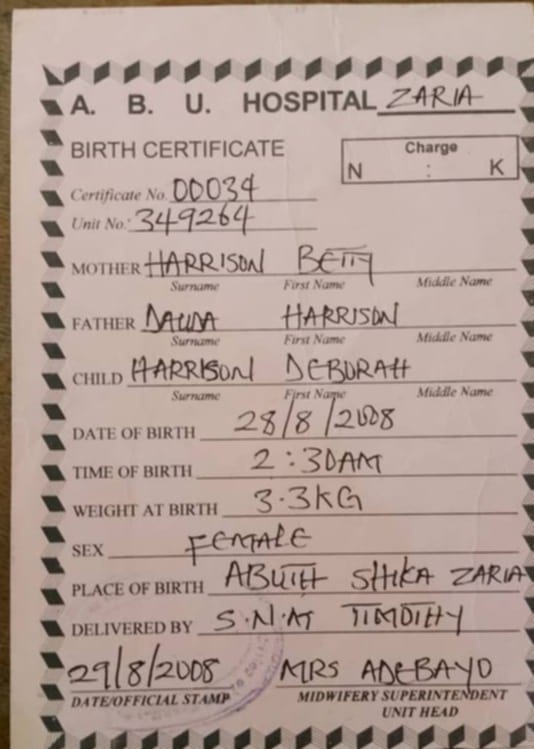 A. B. U. HOSPITAL ZARIA
BIRTH CERTIFICATE
Charge
N : K
Certificate No. 00034
Unit No: 349264
MOTHER HARRISON BETTY
Surname First Name Middle Name
FATHER DAUDA HARRISON
Surname First Name Middle Name
CHILD HARRISON DEBORAH
Surname First Name Middle Name
DATE OF BIRTH 28/8/2008
TIME OF BIRTH 2:30AM
WEIGHT AT BIRTH 3.3KG
SEX FEMALE
PLACE OF BIRTH ABUTH SHIKA ZARIA
DELIVERED BY S.N.M TIMOTHY
29/8/2008 MRS ADEBAYO
DATE/OFFICIAL STAMP MIDWIFERY SUPERINTENDENT
UNIT HEAD